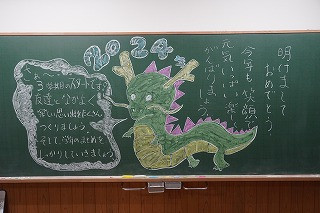 2024年
明けまして
おめでとう
今年も笑顔で
元気いっぱい楽しく
がんばりましょう
さぁ〜
3学期のスタートです!
友達となかよく
楽しい思い出をたくさん
つくりましょう
そして学年のまとめを
しっかりしていきましょう